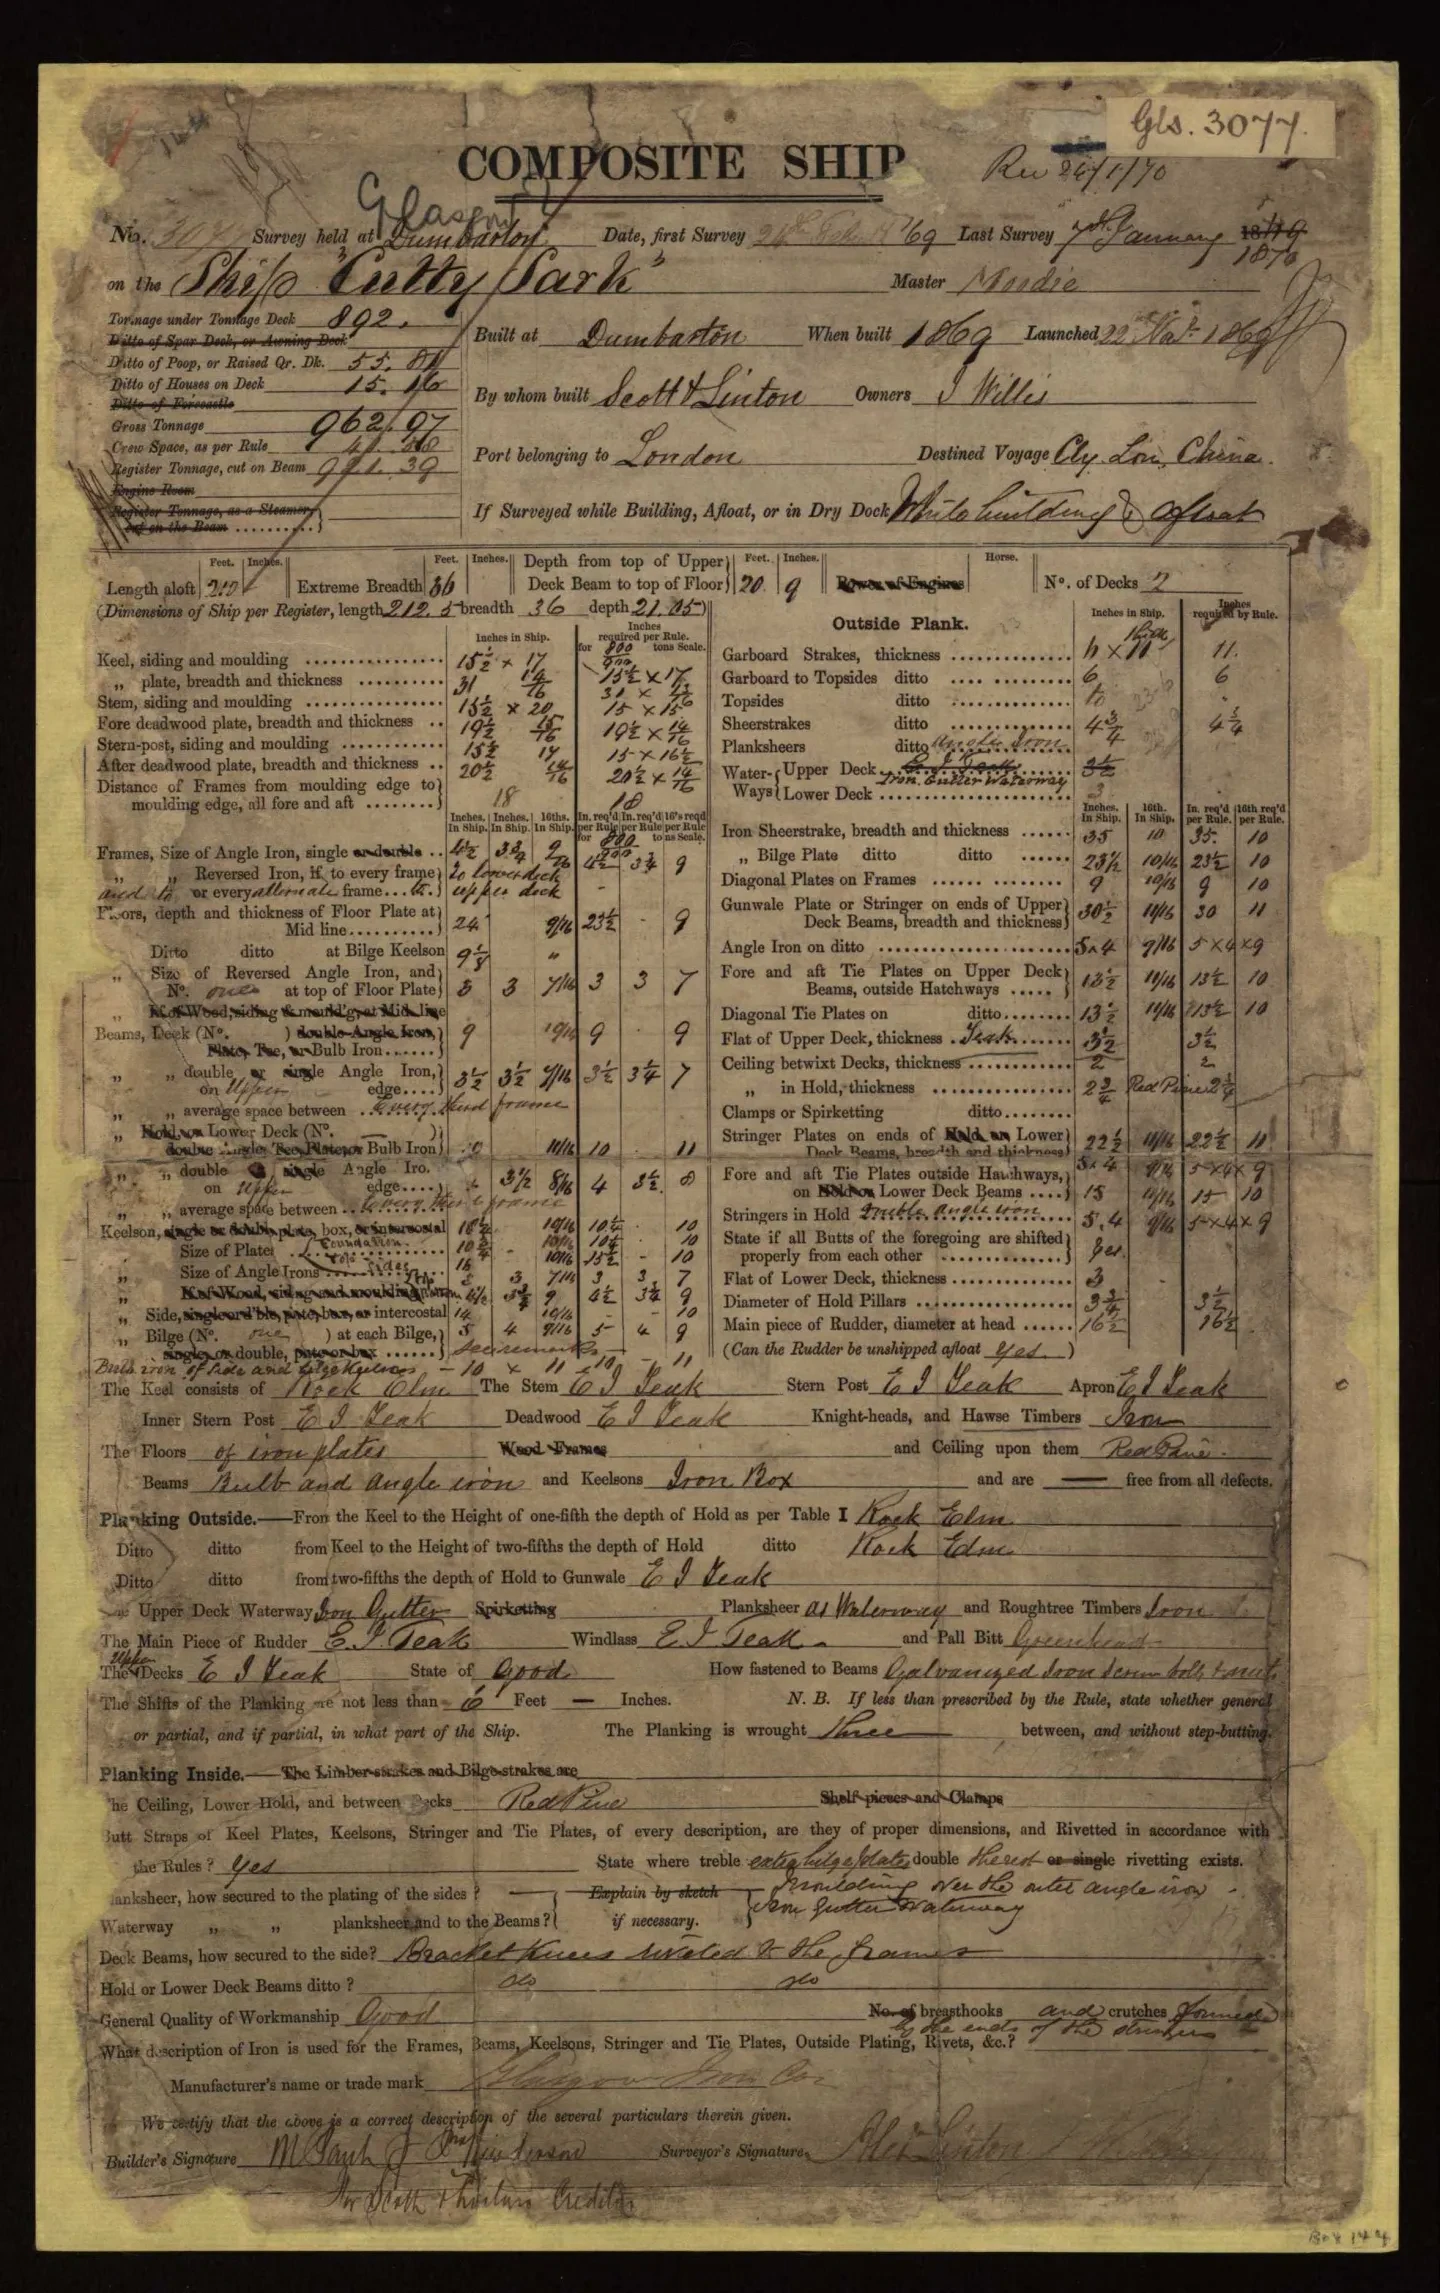 Gls. 3077.
COMPOSITE SHIP
Glasgow
No. 3077 Survey held at Dumbarton Date, first Survey 1869 Last Survey 7th January 1870
on the Ship "Cutty Sark" Master Moodie
Tonnage under Tonnage Deck 892.
Ditto of Spar Deck, or Awning Deck
Ditto of Poop, or Raised Qr. Dk. 55.81
Ditto of Houses on Deck 15.16
Ditto of Forecastle
Gross Tonnage 962.97
Crew Space, as per Rule
Register Tonnage, cut on Beam 921.39
Engine Room
Register Tonnage, as a Steamer, cut on the Beam
Built at Dumbarton When built 1869 Launched 22nd Novr. 1869
By whom built Scott & Linton Owners J Willis
Port belonging to London Destined Voyage Cly. Lon, China.
If Surveyed while Building, Afloat, or in Dry Dock While building & afloat
Length aloft 210 Feet. Inches. Extreme Breadth 36 Feet. Inches. Depth from top of Upper Deck Beam to top of Floor 20 Feet. 9 Inches. Power of Engines Horse. No. of Decks 2
(Dimensions of Ship per Register, length 212.5 breadth 36 depth 21.05)
Inches in Ship. Inches required per Rule. for 800 tons Scale.
Keel, siding and moulding 15½ × 17 15½ × 17
„ plate, breadth and thickness 31 14/16
Stem, siding and moulding 15½ × 20 15 × 15
Fore deadwood plate, breadth and thickness 19½ 15/16 19½ × 14/16
Stern-post, siding and moulding 15½ 17 15 × 16½
After deadwood plate, breadth and thickness 20½ 14/16 20½ × 14/16
Distance of Frames from moulding edge to moulding edge, all fore and aft 18 18
Inches. In Ship. Inches. In Ship. 16ths. In Ship. In. req'd per Rule In. req'd per Rule 16's reqd per Rule
Frames, Size of Angle Iron, single or double 4½ 3¾ 9/16 4½ 3¾ 9
„ „ Reversed Iron, if to every frame to lower deck
and to or every alternate frame to upper deck
Floors, depth and thickness of Floor Plate at Mid line 24 9/16 23½ 9
Ditto ditto at Bilge Keelson 9⅛ „
„ Size of Reversed Angle Iron, and No. one at top of Floor Plate 3 3 7/16 3 3 7
„ If of Wood, siding & mould'g, at Mid. line
Beams, Deck (No. ) double Angle Iron, Plate, Tee, or Bulb Iron 9 9 9
„ „ double or single Angle Iron, on Upper edge 3½ 3½ 7/16 3½ 3¼ 7
„ „ average space between every third frame
„ Hold, or Lower Deck (No. ) double Angle, Tee, Plate, or Bulb Iron 10 11/16 10 11
„ „ double or single Angle Iro. on Upper edge 3½ 8/16 4 3½ 8
„ „ average space between every third frame
Keelson, single or double, plate, box, or intercostal 10/16 10¼ 10
„ Size of Plates Foundation 10¾ 10/16 10¼ 10
Size of Angle Irons 3 7/16 3 3 7
„ If of Wood, siding and moulding 3¾ 9 4½ 3¾ 9
„ Side, single or d'ble, plate, box, or intercostal 14 10/16 10
„ Bilge (No. one ) at each Bilge, single, or double, plate or box 5 4 9/16 5 4 9
Bulb iron of side and bilge Keelsons 10 × 11 10 11
Outside Plank. Inches in Ship. Inches required by Rule.
Garboard Strakes, thickness 11 × 11 11.
Garboard to Topsides ditto 6 6
Topsides ditto
Sheerstrakes ditto 4¾ 4¾
Planksheers ditto Angle Iron
Water-Ways Upper Deck E I Teak 3½
Iron Gutter Waterway
Lower Deck 3
Inches. In Ship. 16th. In Ship. In. req'd per Rule. 16th req'd per Rule.
Iron Sheerstrake, breadth and thickness 35 10 35 10
„ Bilge Plate ditto ditto 23½ 10/16 23½ 10
Diagonal Plates on Frames 9 10/16 9 10
Gunwale Plate or Stringer on ends of Upper Deck Beams, breadth and thickness 30½ 11/16 30 11
Angle Iron on ditto 5×4 9/16 5×4×9
Fore and aft Tie Plates on Upper Deck Beams, outside Hatchways 13½ 11/16 13½ 10
Diagonal Tie Plates on ditto 13½ 11/16 13½ 10
Flat of Upper Deck, thickness Teak 3½ 3½
Ceiling betwixt Decks, thickness 2 2
„ in Hold, thickness 2¾ Red Pine 2¾
Clamps or Spirketting ditto
Stringer Plates on ends of Hold or Lower Deck Beams, breadth and thickness 22½ 11/16 22½ 11
5×4 9/16 5×4×9
Fore and aft Tie Plates outside Hatchways, on Hold or Lower Deck Beams 15 11/16 15 10
Stringers in Hold Double angle iron 5.4 9/16 5×4×9
State if all Butts of the foregoing are shifted properly from each other Yes.
Flat of Lower Deck, thickness 3
Diameter of Hold Pillars 3¾ 3½
Main piece of Rudder, diameter at head 16½ 16½
(Can the Rudder be unshipped afloat Yes.)
The Keel consists of Rock Elm The Stem E I Teak Stern Post E I Teak Apron E I Teak
Inner Stern Post E I Teak Deadwood E I Teak Knight-heads, and Hawse Timbers Iron
The Floors of iron plates Wood Frames and Ceiling upon them Red Pine.
Beams Bulb and angle iron and Keelsons Iron Box and are — free from all defects.
Planking Outside.—From the Keel to the Height of one-fifth the depth of Hold as per Table I Rock Elm
Ditto ditto from Keel to the Height of two-fifths the depth of Hold ditto Rock Elm
Ditto ditto from two-fifths the depth of Hold to Gunwale E I Teak
Upper Deck Waterway Iron Gutter Spirketting Planksheer as Waterway and Roughtree Timbers Iron
The Main Piece of Rudder E. I. Teak Windlass E I Teak. and Pall Bitt Greenheart
The Upper Decks E I Teak State of Good How fastened to Beams Galvanized Iron Screw bolts & nuts
The Shifts of the Planking are not less than 6 Feet — Inches. N. B. If less than prescribed by the Rule, state whether general
or partial, and if partial, in what part of the Ship. The Planking is wrought three between, and without step-butting.
Planking Inside.—The Limber-strakes and Bilge-strakes are
The Ceiling, Lower Hold, and between Decks Red Pine Shelf-pieces and Clamps
Butt Straps of Keel Plates, Keelsons, Stringer and Tie Plates, of every description, are they of proper dimensions, and Rivetted in accordance with
the Rules? Yes State where treble extra bilge plates double the rest or single rivetting exists.
Planksheer, how secured to the plating of the sides? Explain by sketch Moulding over the outer angle iron
Waterway „ „ planksheer and to the Beams? if necessary. Iron Gutter Waterway
Deck Beams, how secured to the side? Bracket Knees riveted to the frames
Hold or Lower Deck Beams ditto? do do
General Quality of Workmanship Good No. of breasthooks and crutches formed
by the ends of the stringers
What description of Iron is used for the Frames, Beams, Keelsons, Stringer and Tie Plates, Outside Plating, Rivets, &c.?
Manufacturer's name or trade mark Glasgow Iron Co.
We certify that the above is a correct description of the several particulars therein given.
Builder's Signature Surveyor's Signature,
for Scott & Lintons Creditors
Box 144